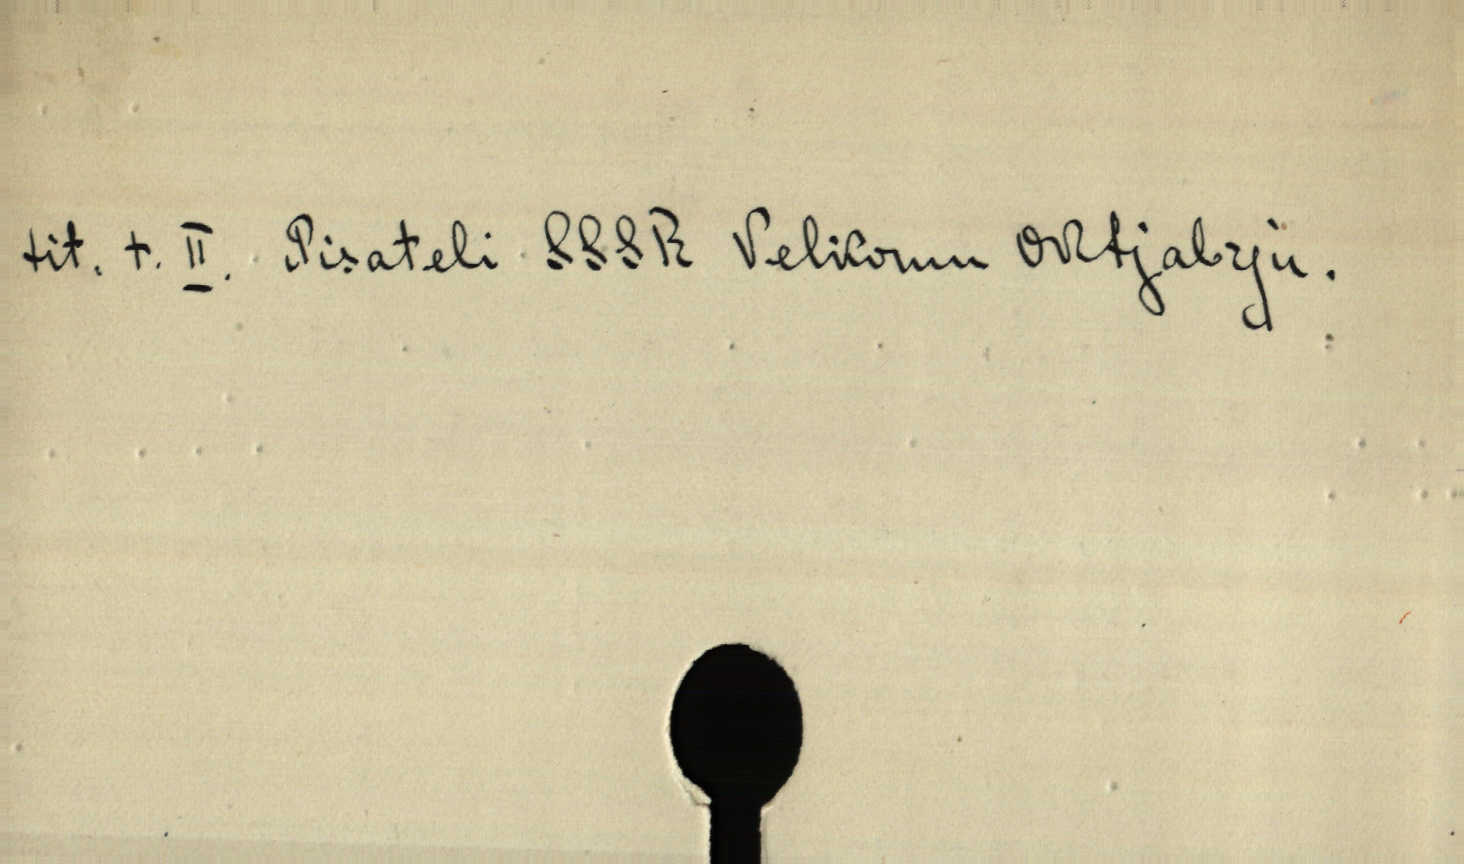 tit. t. II. Pisateli SSSR Velikomu Oktjabrju.